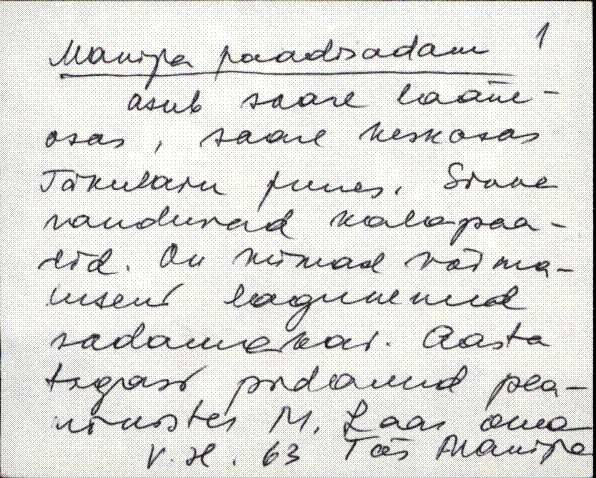 Manija paadisadam 1
asub saare lääne-
osas, saare keskosas
Tõkulaiu juures. Sinna
randuvad kalapaa-
did. On viimas võima-
luseni lagunenud
sadamakai. Aasta
tagasi pidanud pea-
minister M. Laar oma
V. H. 63 Tõs Manija